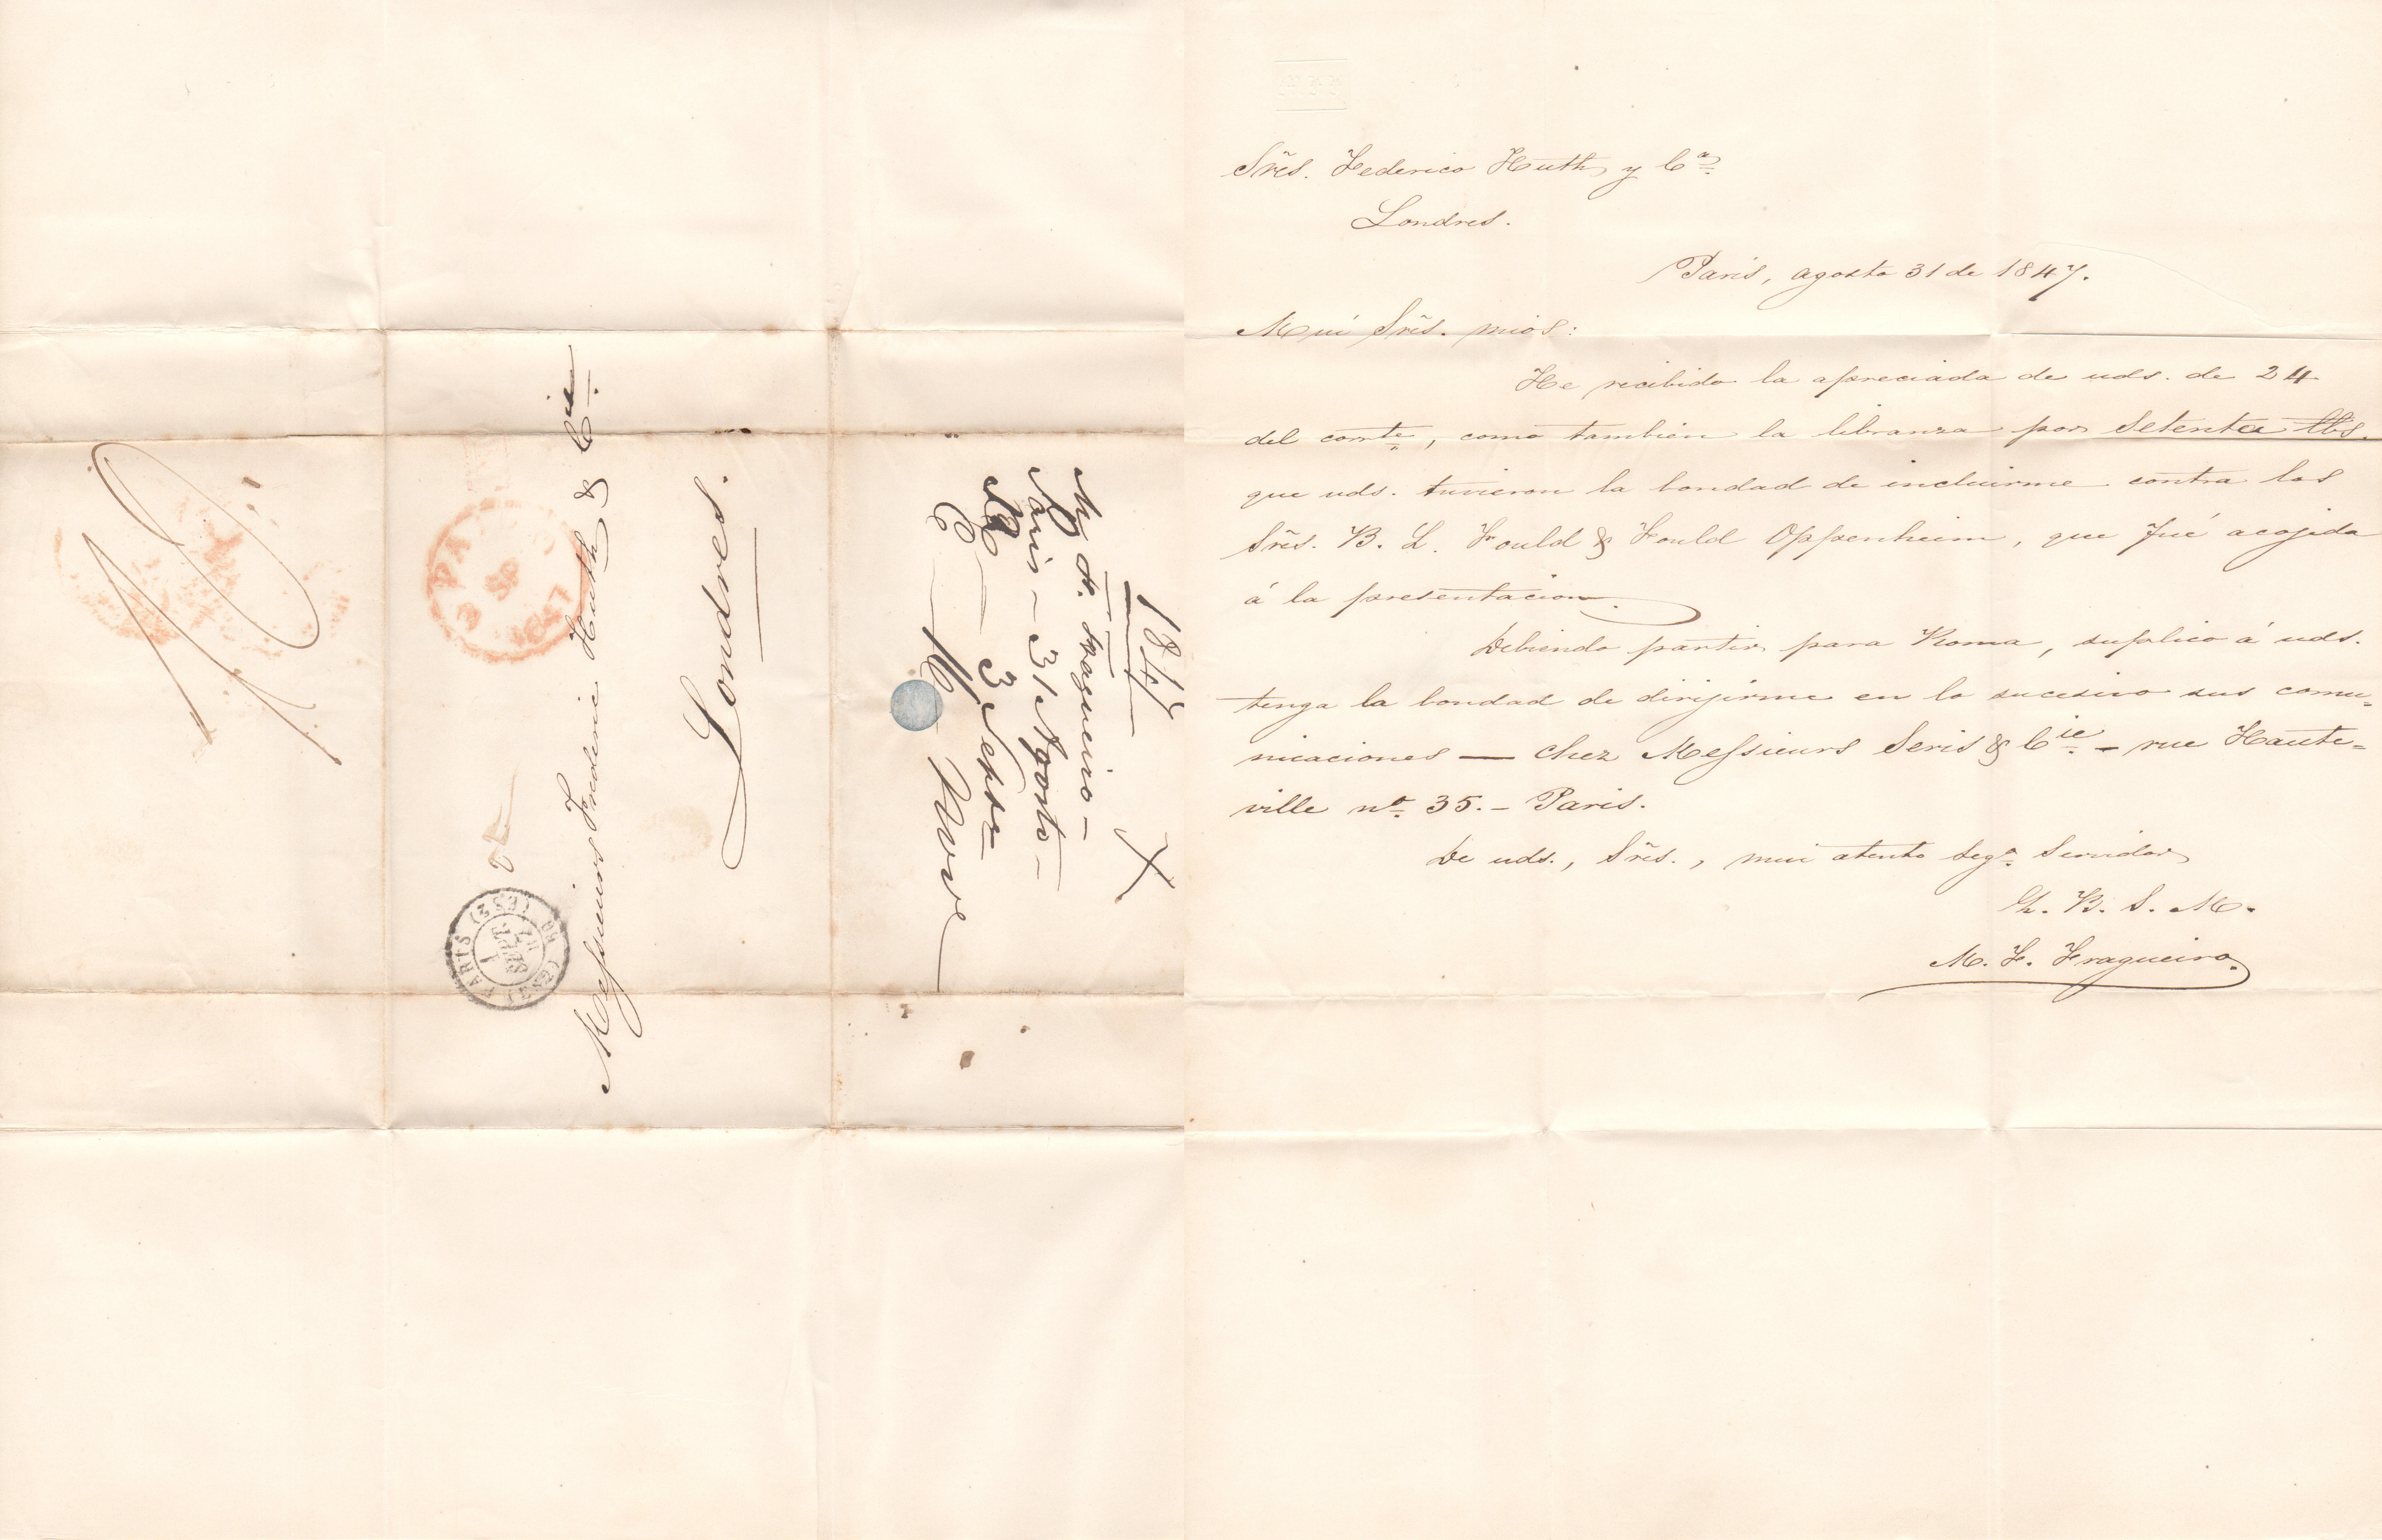 Messieurs Frederic Huth & Cie.
Londres.
PARIS (ESZ)
1
SEPT
47
PA
3 SP
1847
10
1847
M. F. Fragueiro
Paris — 31 Agosto
3 Septe
Sr̃es. Federico Huth y Ca.
Londres.
Paris, agosto 31 de 1847.
Mui Sr̃es. mios:
He recibido la apreciada de uds. de 24
del corrte., como tambien la libranza por setenta lbs.
que uds. tuvieron la bondad de incluirme contra los
Sr̃es. B. L. Fould & Fould Oppenheim, que fué acojida
á la presentacion.
Debiendo partir para Roma, suplico á uds.
tenga la bondad de dirijirme en lo sucesivo sus comu=
nicaciones — Chez Messieurs Seris & Cie. — rue Haute=
ville no. 35. — Paris.
De uds., Sr̃es., mui atento segr. Servidor
Q. B. S. M.
M. F. Fragueiro.